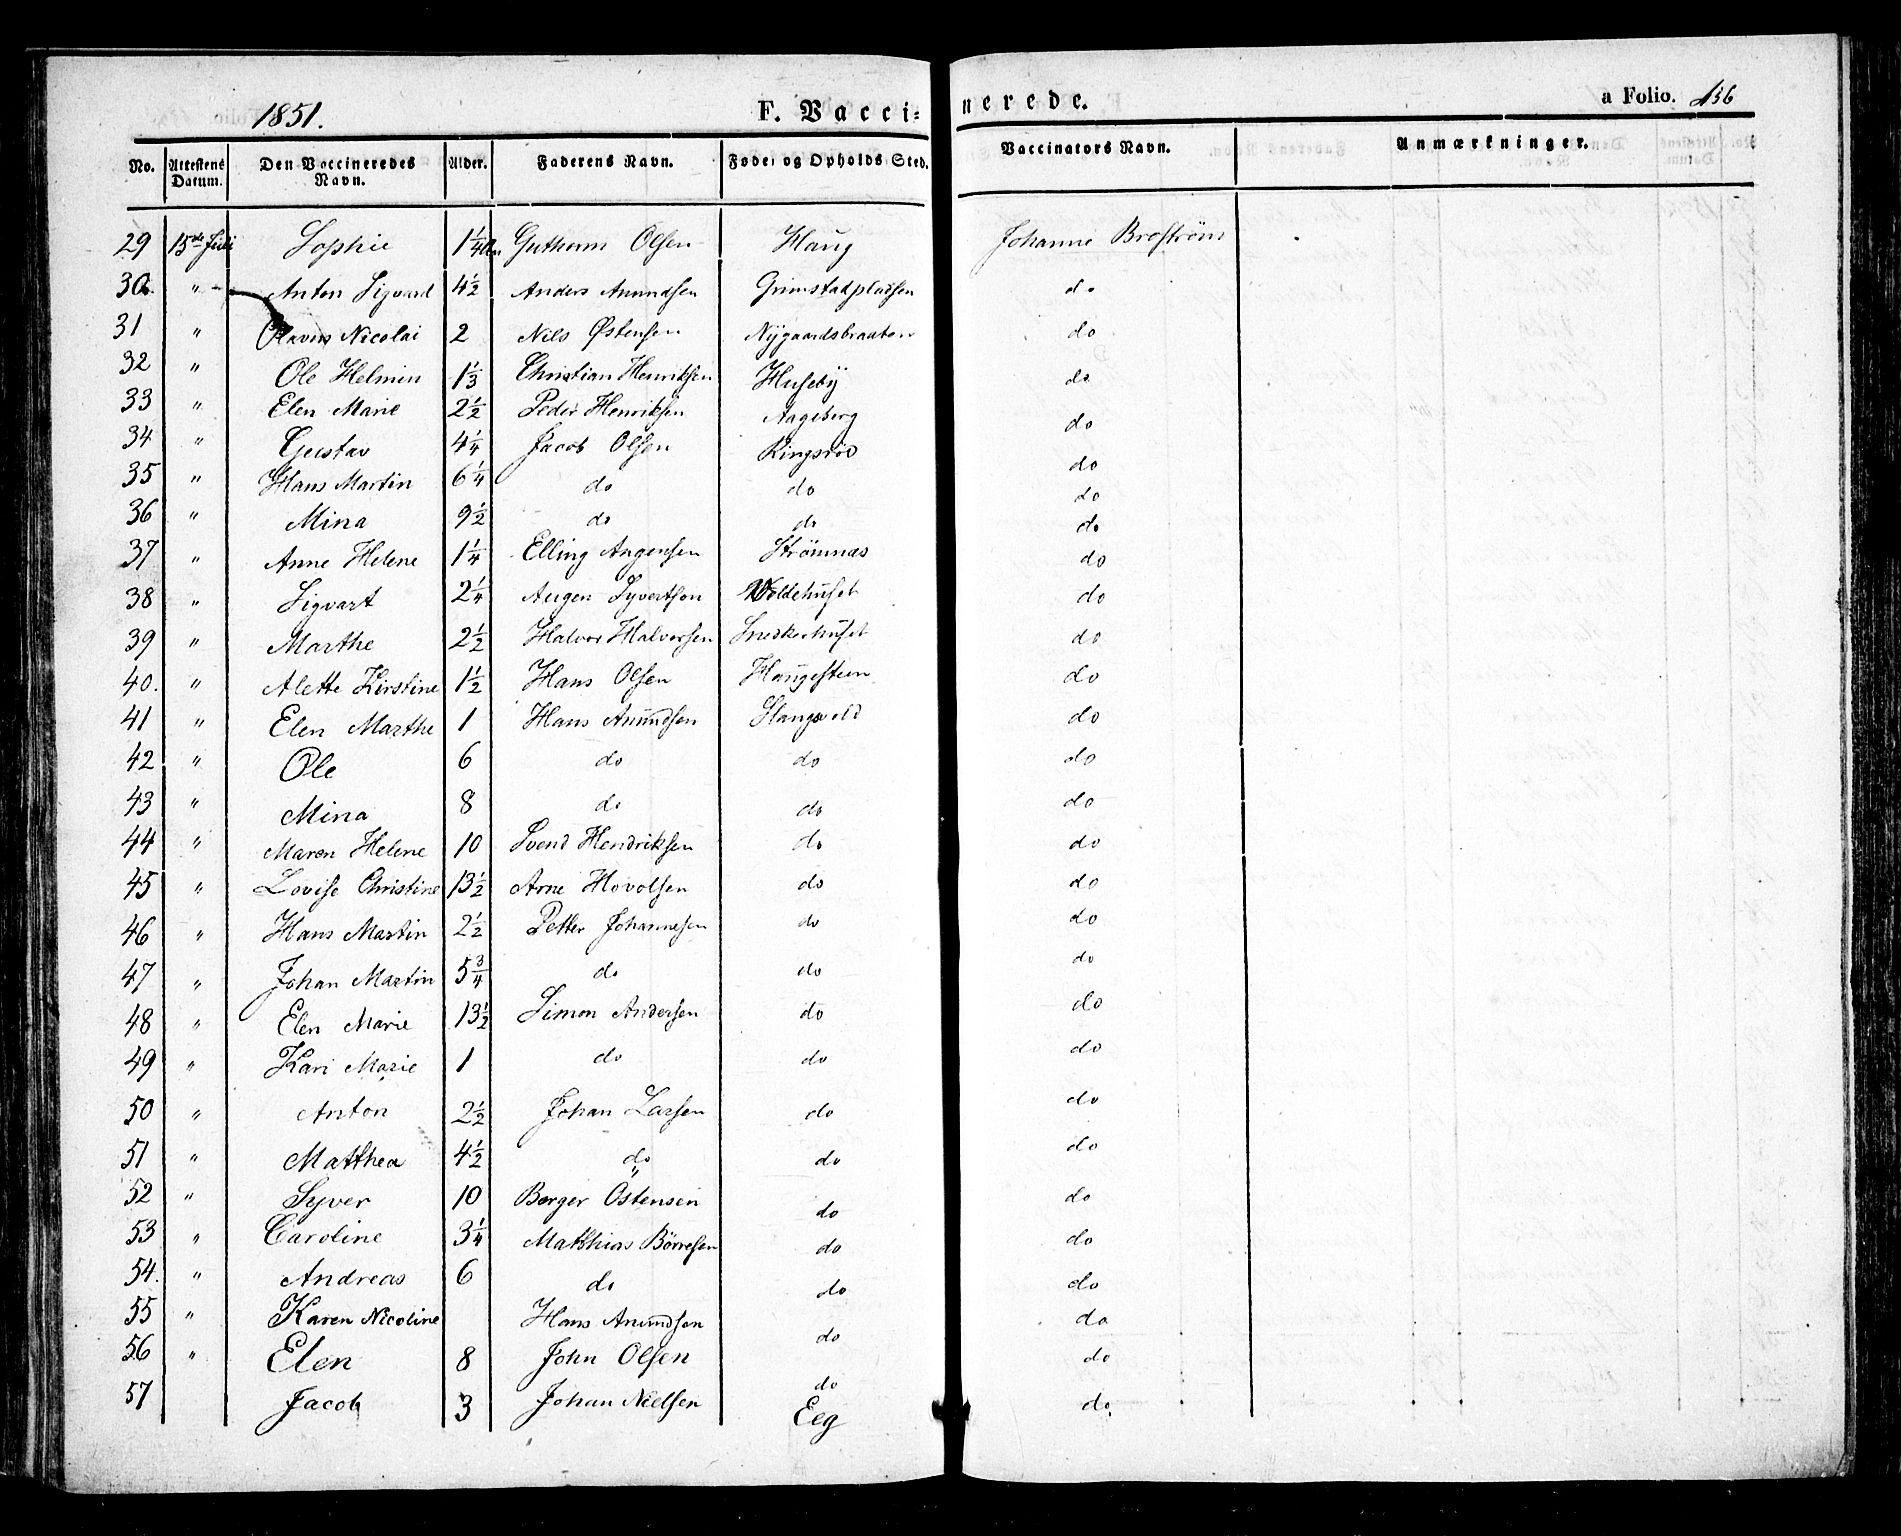 1851. F. Vaccinerede. a Folio. 136
No. Attestens Datum. Den Vaccineredes Navn. Alder. Faderens Navn. Føde- og Opholds Sted. Vaccinators Navn. Anmærkninger.
29 15de Juli Sophie 1 1/4 Guthorm Olsen Haug Johanne Broström
30. " Anton Sigvard 4 1/2 Anders Anundsen Grimstadpladsen do
31 " Olavus Nicolai 2 Nils Østensen Nygaardsbraaten do
32 " Ole Helmin 1 1/3 Christian Henriksen Huseby do
33 " Elen Marie 2 1/2 Peder Henriksen Aageberg do
34 " Gustav 4 1/4 Jacob Olsen Ringsröd do
35 " Hans Martin 6 1/4 do do do
36 " Mina 9 1/2 do do do
37 " Anne Helene 1 1/4 Elling Augensen Strömnas do
38 " Sigvart 2 1/4 Augen Syvertson Woldehuset do
39 " Marthe 2 1/2 Halvor Halversen Snedkerhuset do
40. " Alette Kirstine 1 1/2 Hans Olsen Haugesteen do
41 " Elen Marthe 1 Hans Anundsen Slangsvold do
42 " Ole 6 do do do
43 " Mina 8 do do do
44 " Maren Helene 10 Svend Hendriksen do do
45 " Lovise Christine 13 1/2 Arne Hovolsen do do
46 " Hans Martin 2 1/2 Petter Johannesen do do
47 " Johan Martin 5 3/4 do do do
48 " Elen Marie 13 1/2 Simon Andersen do do
49 " Kari Marie 1 do do do
50 " Anton 2 1/2 Johan Larsen do do
51 " Matthea 4 1/2 do do do
52 " Syver 10 Berger Östensen do do
53 " Caroline 3 1/4 Matthias Börresen do do
54. " Andreas 6 do do do
55 " Karen Nicoline Hans Anundsen do do
56 " Elen 8 John Olsen do do
57 Jacob 3 Johan Nielsen Eeg do.